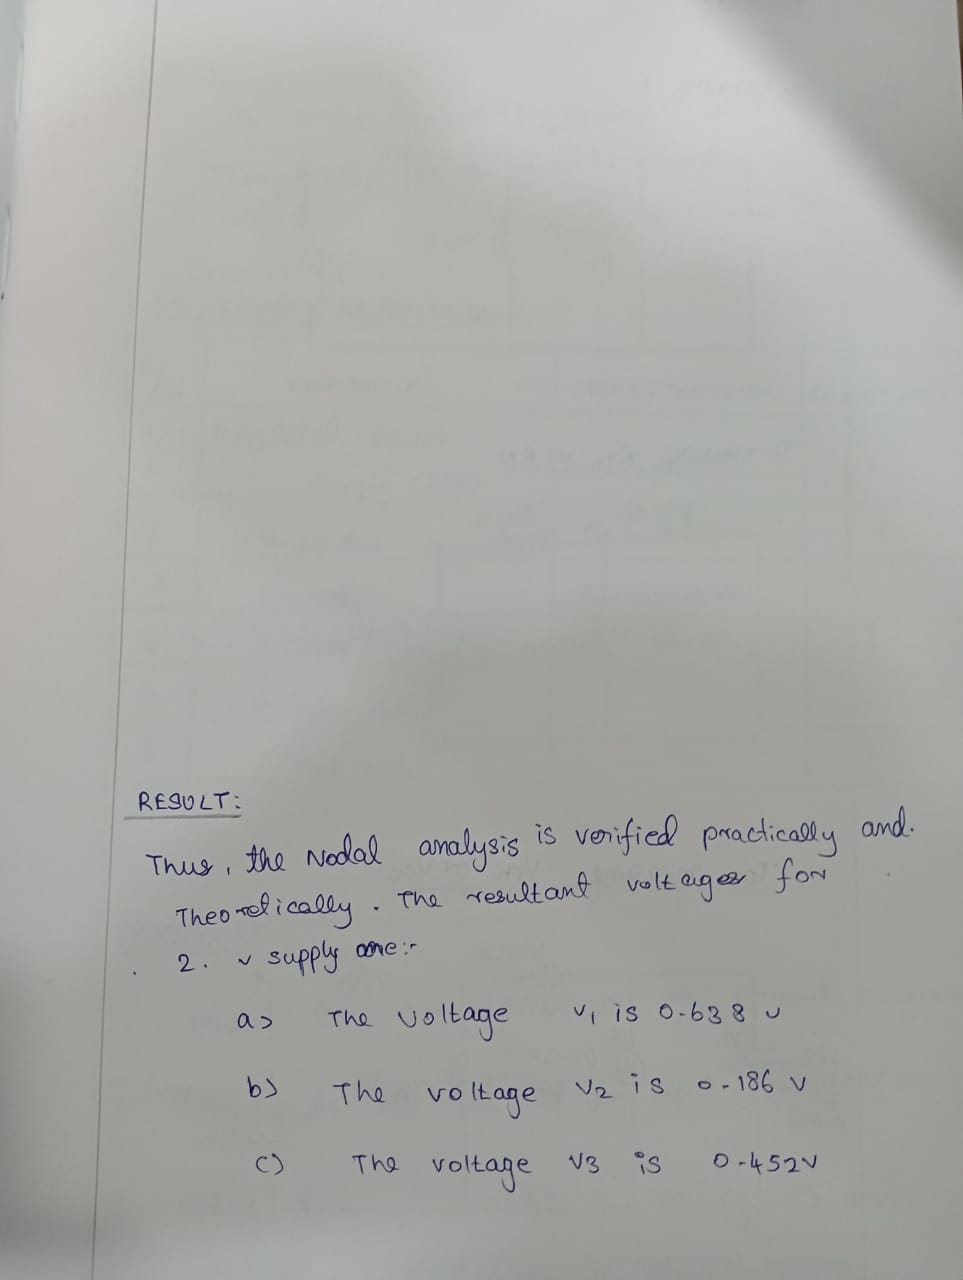 RESULT:
Thus, the Nodal analysis is verified practically and.
Theoretically. The resultant voltages for
2. v supply are:-
a) The voltage V1 is 0.638 v
b) The voltage V2 is 0.186 V
c) The voltage V3 is 0.452V